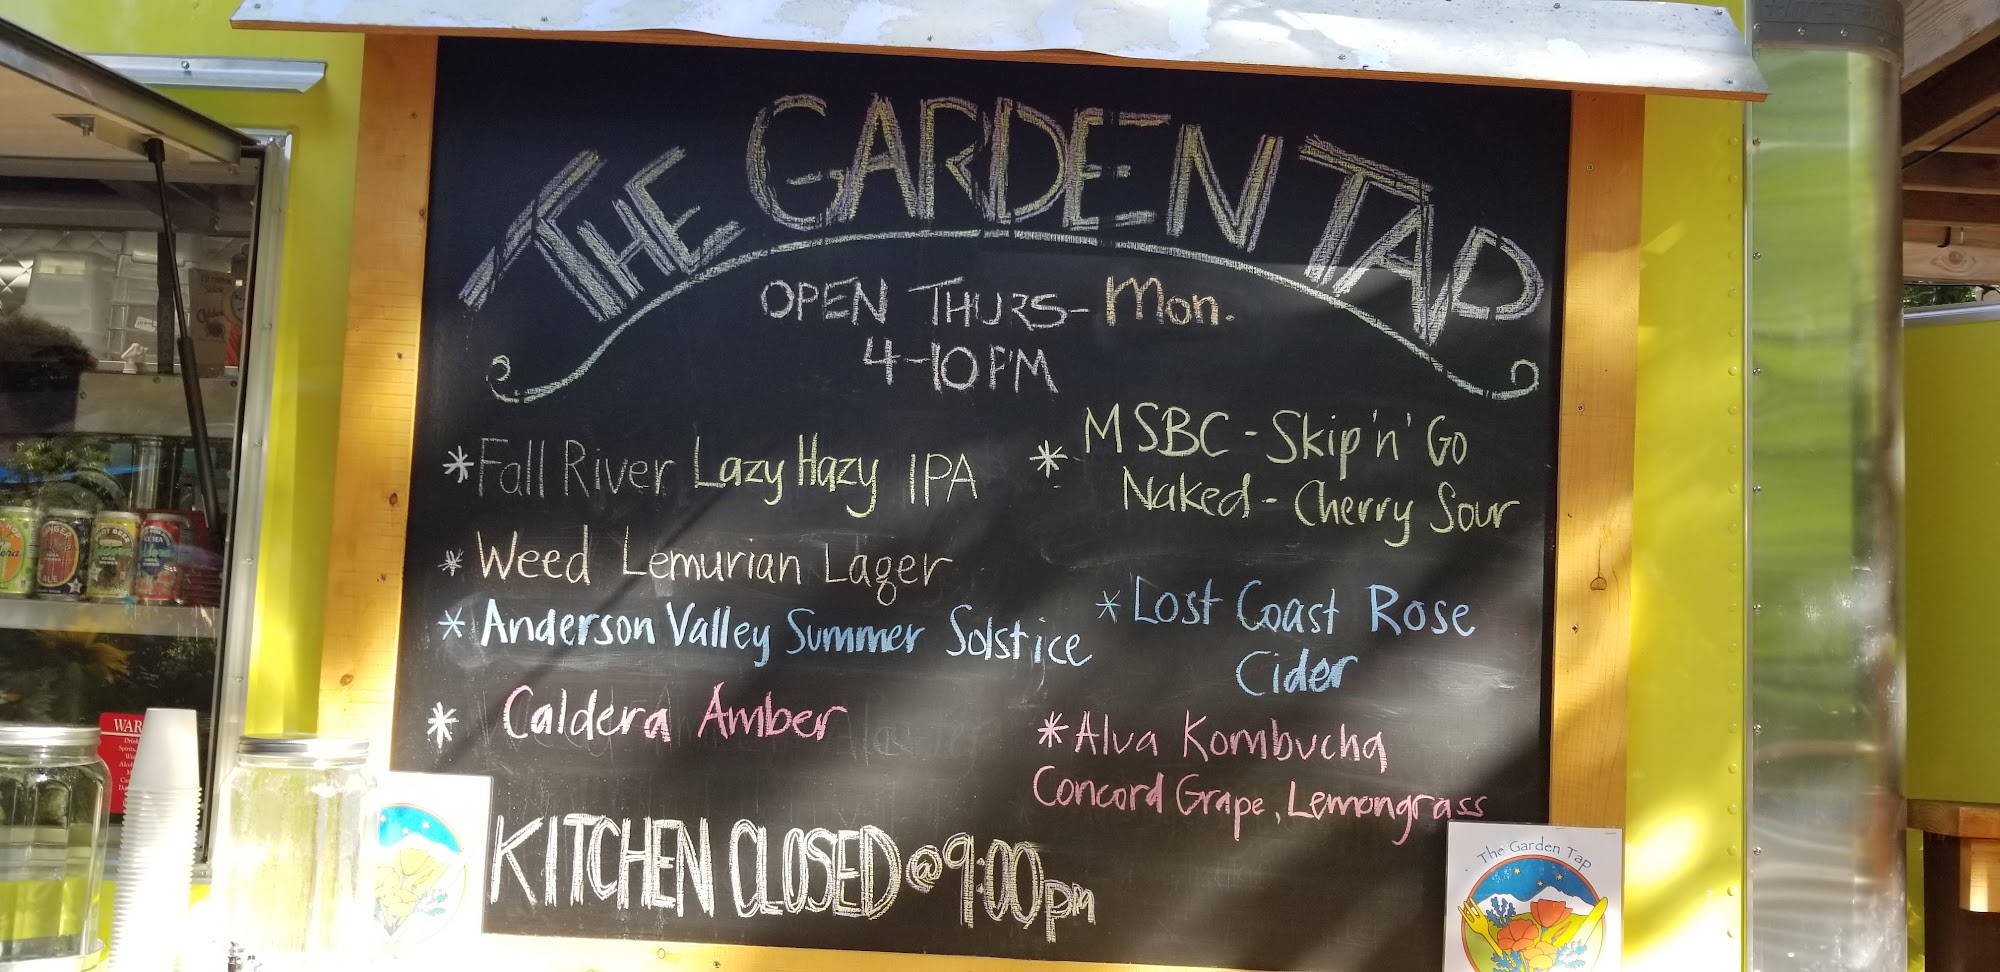 THE GARDEN TAP
OPEN THURS- Mon.
4-10PM
* Fall River Lazy Hazy IPA
* Weed Lemurian Lager
* Anderson Valley Summer Solstice
* Caldera Amber
* MSBC - Skip 'n' Go
Naked - Cherry Sour
* Lost Coast Rose
Cider
* Alva Kombucha
Concord Grape, Lemongrass
KITCHEN CLOSED @ 9:00pm
The Garden Tap
ALE